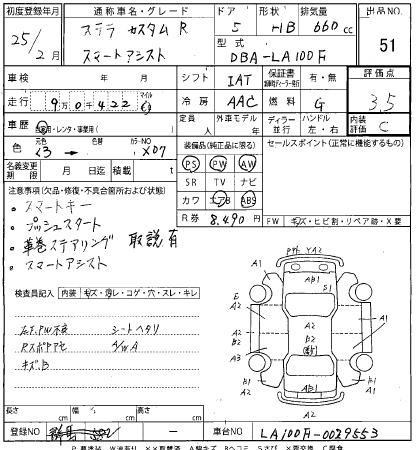 初度登録年月 通称車名・グレード ドア 形状 排気量 出品NO
25年2月 ステラ カスタム R 5 HB 660cc 51
スマートアシスト 型式 DBA-LA100F
車検 年 月 シフト IAT 保証書 有・無 評価点
走行 9万0千422 マイル km 冷房 AAC 燃料 G 3.5
車歴 自家用・レンタ・事業用( ) 定員 人 外車モデル 年 ディーラー 並行 ハンドル 左・右 内装評価 C
色 元色 色替 カラーNO X07 装備品(純正品に限る) セールスポイント(正常に機能するもの)
名義変更期限 月 日迄 積載 t PS PW AW
注意事項(欠品・修復・不具合箇所および状態) SR TV ナビ
・スマートキー カワ エアB ABS
・プッシュスタート R券 8,490円 FW キズ・ヒビ割・リペア跡・X要
・革巻ステアリング 取説有
・スマートアシスト
検査員記入 内装 キズ・汚レ・コゲ・穴・スレ・キレ
シートヘタリ
A/W A
キズ、B
A1 YA2 A1
AB1 S1
E A2 A2 A1
A2 B2
A3 A2 B2
A1 AB1 A1
長さ cm 幅 cm 高さ cm
登録NO 群馬 552 - 車台NO LA100F-0029553